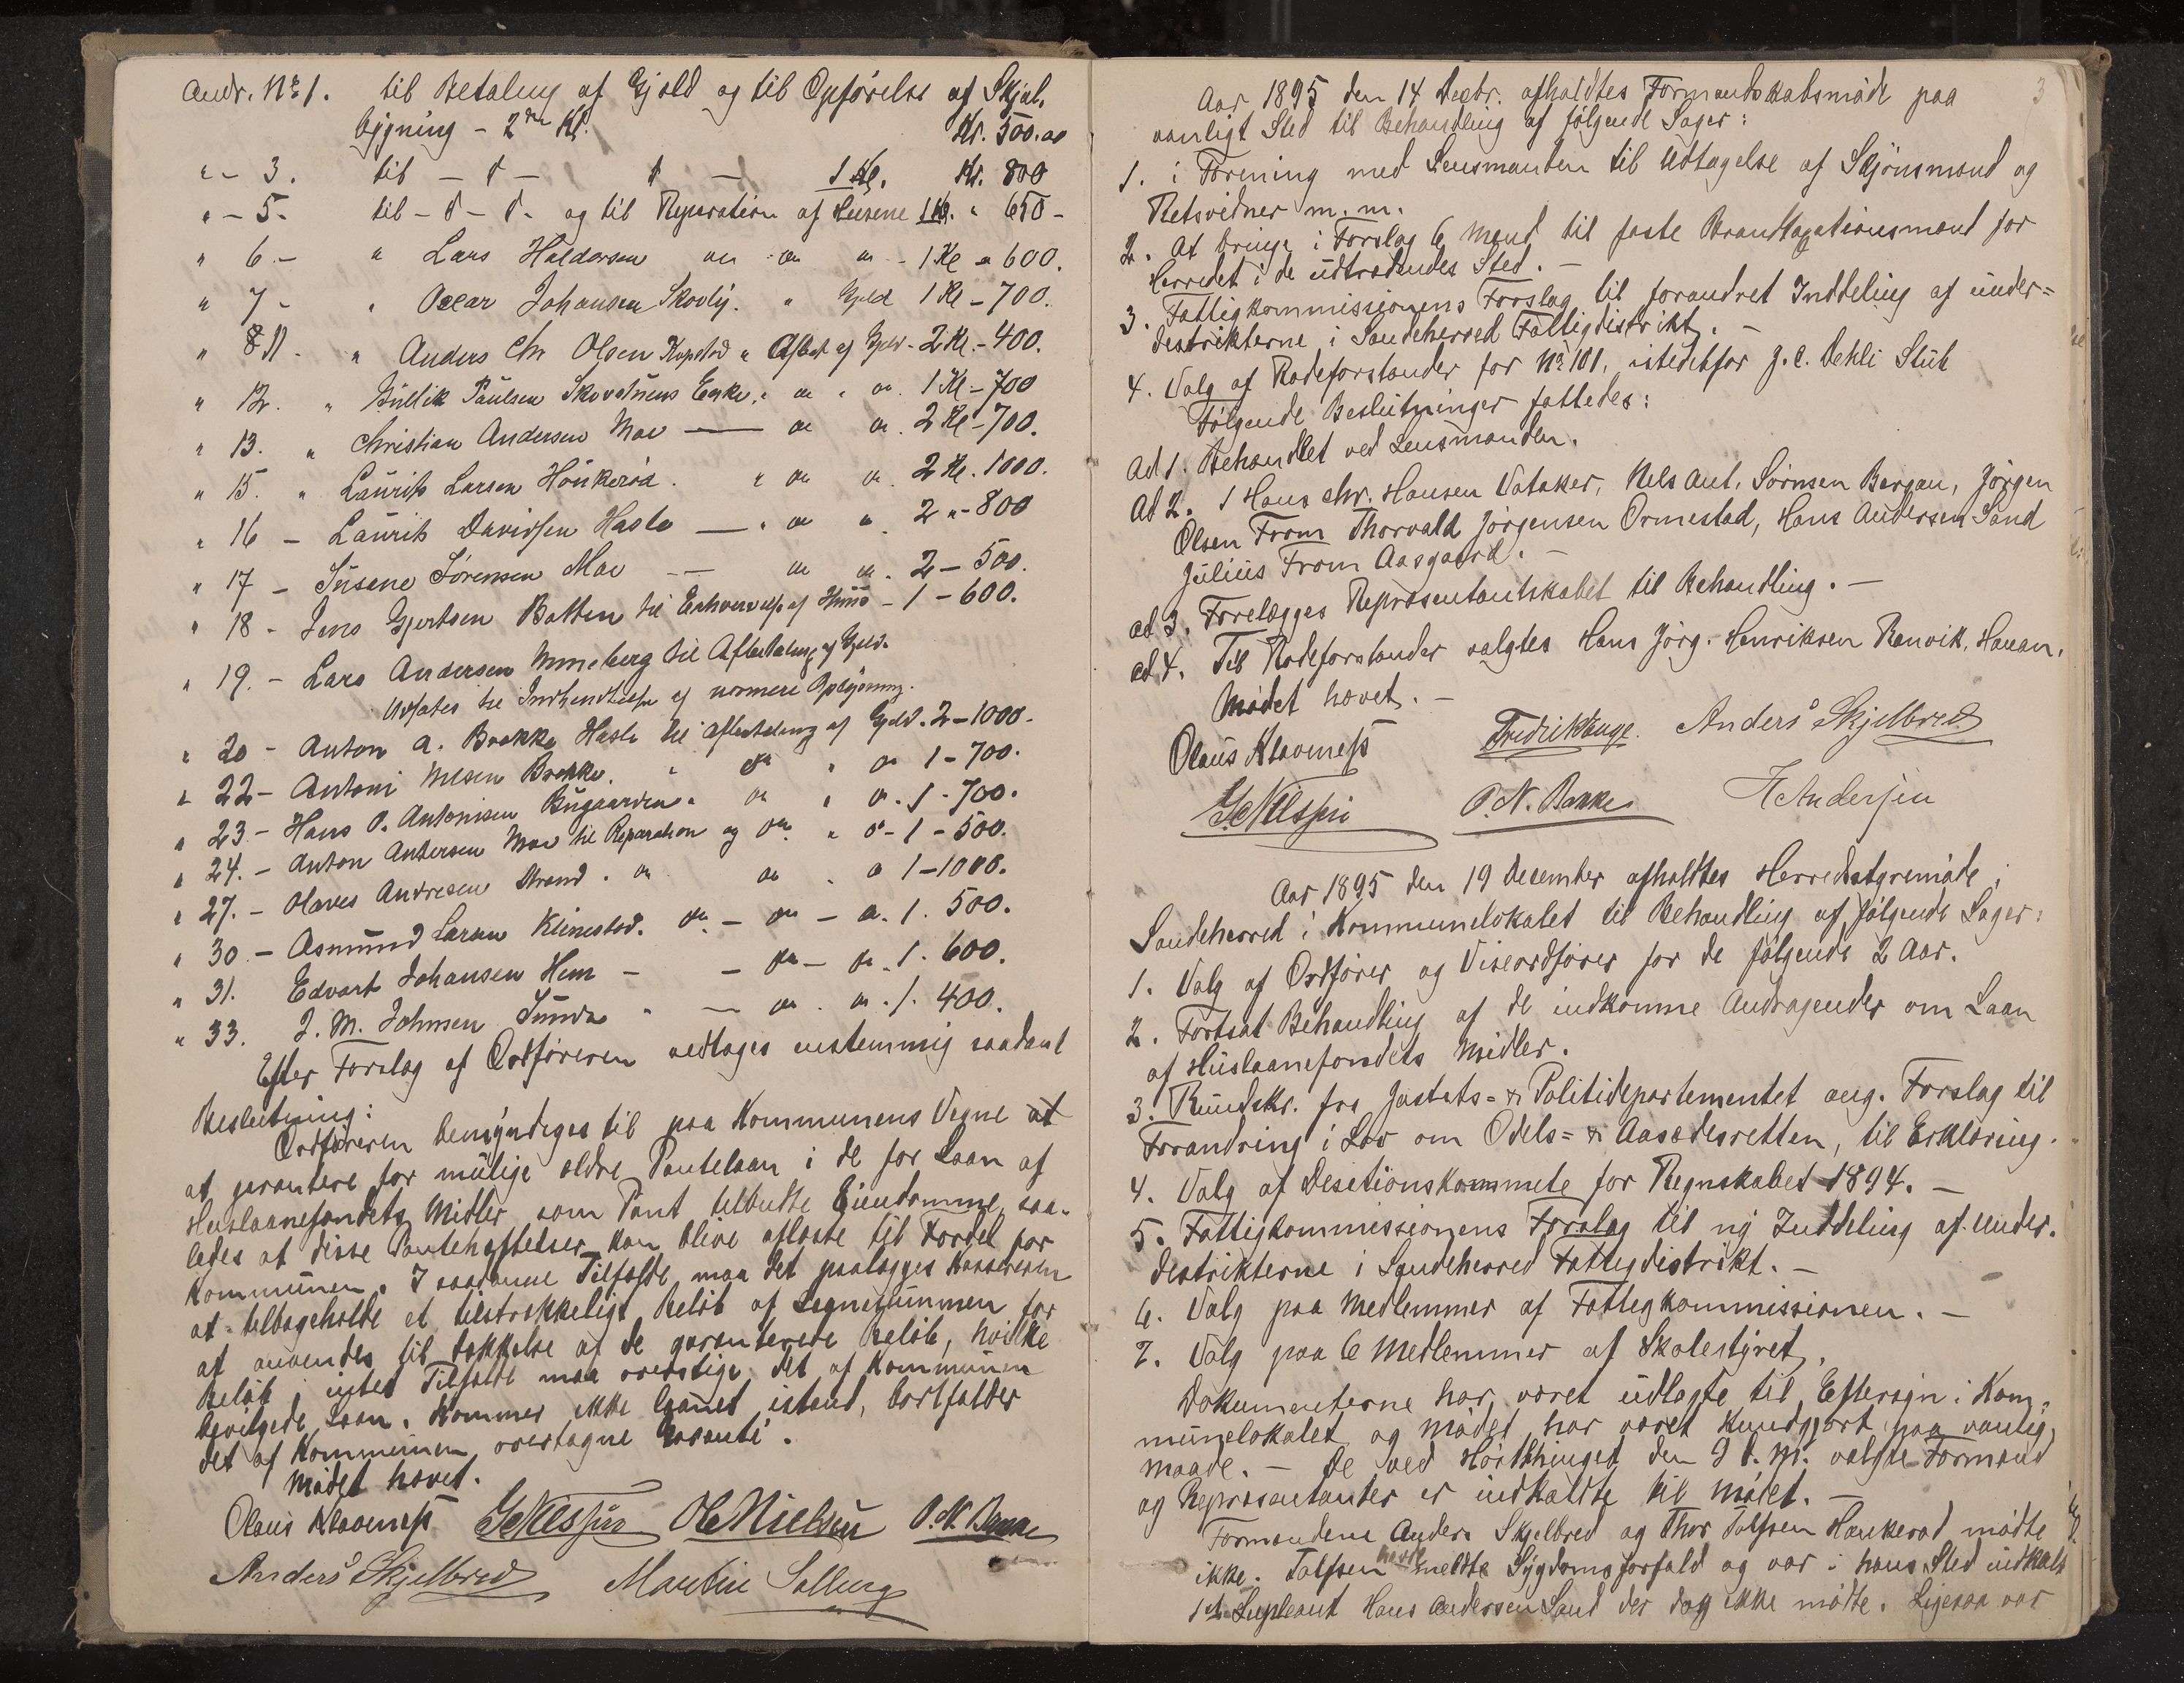 Andr. No 1. til Betaling af Gjæld og til Opførelse af Skjul,
bygning - 2den Kl. Kr. 500.00
" - 3. til - d - d - 1 Kl. Kr. 800
" - 5. til - d - d - og til Reparation af Husene 1 Kl. " 650 -
" 6 - " Lars Haldorsen 1 Kl " 600.
" 7 - " Oscar Johansen Skovly. " Gjeld 1 Kl - 700.
" 8 " Anders Chr Olsen Kopstad " Afbet af Gjeld - 2 Kl. - 400.
" 12. " Paulsen Enke. 1 Kl - 700
" 13. " Christian Andersen Moe 2 Kl - 700.
" 15. " Laurits Larsen Haukerød. 2 Kl. 1000.
" 16 - Laurits Davidsen Hasle 2 " - 800
" 17 - Sørensen Moe 2 - 500.
" 18 - Jens Gjertsen Botten til Erhvervelse af Huse - 1 - 600.
" 19. - Lars Andersen Unneberg til Afbetaling af Gjeld.
Udsates til Indhendtelse af nærmere Oplysning.
" 20 - Anton A. Brekke Hasle til afbetaling af Gjeld. 2 - 1000.
" 22 - Antoni Nilsen Brekke. 1 - 700.
" 23 - Hans O. Antonisen Bugaarden 1 - 700.
" 24. - Anton Andersen Moe til Reparation og 1 - 500.
" 27. - Olaves Andresen Strand 1 - 1000.
" 30 - Asmund Larsen Klinestad. 1. 500.
" 31. Edvart Johansen Hem - 1. 600.
" 33. J. M. Johnsen Sunde 1. 400.
Efter Forslag af Ordføreren vedtages enstemmig saadant
Beslutning:
Ordføreren bemyndiges til paa Kommunens Vegne at
at garantere for mulige ældre Pantelaan i de for Laan af
Huslaanefondets Midler som Pant tilbudte Eiendomme, saa-
ledes at disse Pantehæftelser kan blive afløste til Fordel for
Kommunen. I saadanne Tilfælde maa det paalægges Kassereren
at tilbageholde et tilstrækkeligt Beløb af Legnesummen for
at anvendes til Dækkelse af de garanterede Beløb, hvilke
Beløb i intet Tilfælde maa overstige det af Kommunen
bevilgede Laan. Kommer ikke Laanet istand, bortfalder
det af Kommunen overtagne Garanti.
Mødet hævet.
Olaus Klaveness G. Nilssen Ole Nielsen O. N. Bakke
Anders Skjelbred Martin Solberg
3
Aar 1895 den 14 Decbr. afholdtes Formandskabsmøde paa
vanligt Sted til Behandling af følgende Sager:
1. i Forening med Lensmanden til Udtagelse af Skjønsmænd og
Retsvidner m. m.
2. At bringe i Forslag 6 Mænd til faste Brandtaxationsmænd for
Herredet i de udtrædendes Sted. -
3. Fattigkommissionens Forslag til forandret Inddeling af under=
destrikterne i Sandeherred Fattigdistrikt. -
4. Valg af Rodeforstander for No 101. istedetfor J. C. Dehli Stub
Følgende Beslutninger fattedes:
ad 1. Behandlet ved Lensmanden.
Ad 2. Hans Chr. Hansen Vataker, Nels Ant. Sørnsen Bergan, Jørgen
Olsen From Thorvald Jørgensen Ormestad, Hans Andersen Sand
Julius From Aasgaard. -
ad 3. Forelægges Repræsentantskabet til Behandling. -
ad 4. Til Rodeforstander valgtes Hans Jørg. Henriksen Ranvik, Hauan.
Mødet hævet. -
Olaus Klaveness Fredrik Lange. Anders Skjelbred
G. Nilssen O. N. Bakke H Andersen
Aar 1895 den 19 December afholdtes Herredsstyremøde i
Sandeherred i Kommunelokalet til Behandling af følgende Sager:
1. Valg af Ordfører og Viseordfører for de følgende 2 Aar.
2. Fortsat Behandling af de indkomne Andragender om Laan
af Huslaanefondets Midler.
3. Rundskr. fra Justits- & Politidepartementet ang. Forslag til
Forandring i Lov om Odels= & Aasædesretten, til Erklæring.
4. Valg af Desetionskommete for Regnskabet 1894. -
5. Fattigkommissionens Forslag til ny Inddeling af under.
destrikterne i Sandeherred Fattigdistrikt. -
6. Valg paa Medlemmer af Fattigkommissionen. -
7. Valg paa 6 Medlemmer af Skolestyret.
Dokumenterne har været udlagte til Eftersyn i Kom-
munelokalet og Mødet har været Kundgjort paa vanlig
Maade. - De ved Høstthinget den 9 d. M. valgte Formænd
og Repræsentanter er indkaldte til Mødet. -
Formændene Anders Skjelbred og Thor Tolfsen Haukerød mødte
ikke. Tolfsen havde meldte Sygdomsforfald og var i hans Sted indkaldt
1st Supleant Hans Andersen Sand der dog ikke mødte. Ligesaa var